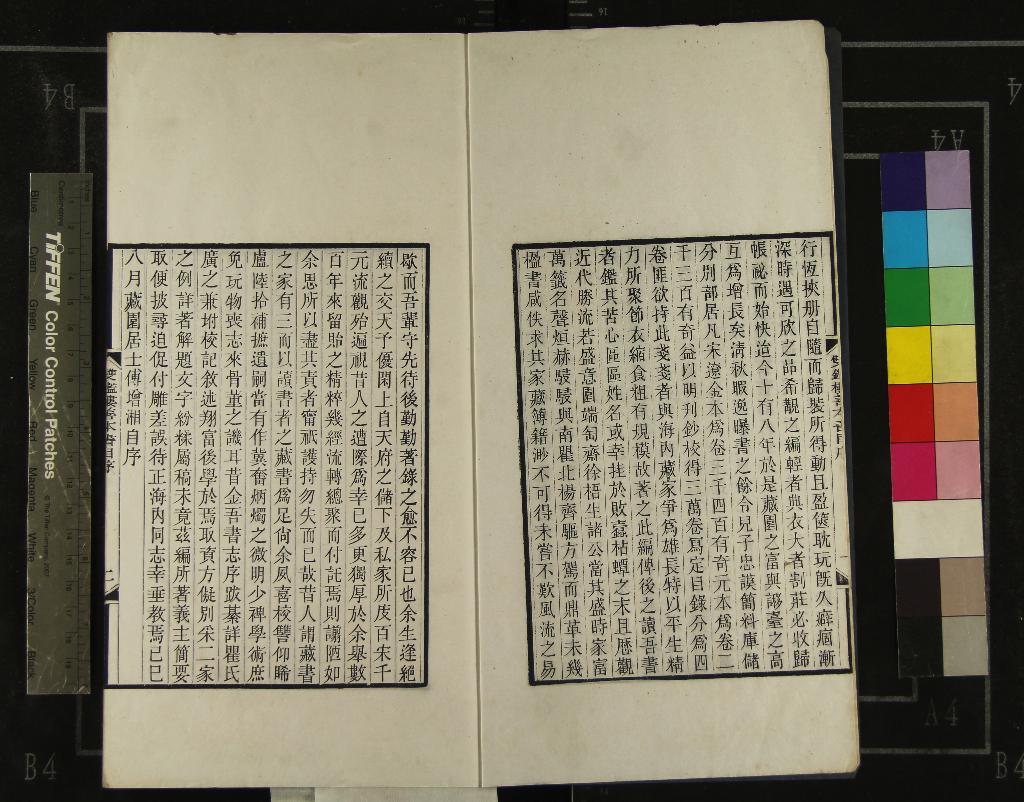 行恆挾册自隨而歸裝所得動且盈篋耽玩旣久癖痼漸
深時遇可欣之品希覯之編輕者典衣大者割莊必收歸
帳祕而始快迨今十有八年於是藏園之富與謻臺之高
互爲增長矣淸秋暇逸曝書之餘令兒子忠謨簡料庫儲
分別部居凡宋遼金本爲卷三千四百有奇元本爲卷二
千三百有奇益以明刊鈔校得三萬卷寫定目錄分爲四
卷匪欲持此戔戔者與海內藏家爭爲雄長特以平生精
力所聚節衣縮食粗有規模故著之此編俾後之讀吾書
者鑑其苦心區區姓名或幸挂於敗蠹枯蟫之末且歷觀
近代勝流若盛意園端匋齋徐梧生諸公當其盛時家富
萬籤名聲烜赫駸駸與南瞿北楊齊驅方駕而鼎革未幾
楹書咸佚求其家藏簿籍渺不可得未嘗不歎風流之易
歇而吾輩守先待後勤勤著錄之愈不容已也余生逢絕
續之交天予優閑上自天府之儲下及私家所庋百宋千
元流觀殆遍視昔人之遭際爲幸已多奭獨厚於余舉數
百年來留貽之精粹幾經流轉總聚而付託焉則謭陋如
余思所以盡其責者甯祇護持勿失而已哉昔人謂藏書
之家有三而以讀書者之藏書爲足尙余夙喜校讐仰睎
盧陸拾補摭遺嗣當有作冀奮炳燭之微明少裨學術庶
免玩物喪志來骨董之譏耳昔企吾書志序跋綦詳瞿氏
廣之兼坿校記敘述翔富後學於焉取資方儗別朱二家
之例詳著解題文字紛糅屬稿未竟茲編所著義主簡要
取便披尋迫促付雕差誤待正海內同志幸垂敎焉己巳
八月藏園居士傅增湘自序
雙鑑樓善本書目序
雙鑑樓善本書目序
一
二
TIFFEN Color Control Patches
Blue
Cyan
Green
Yellow
Red
Magenta
White
3/Color
Black
B4
A4
A4
B4
B4